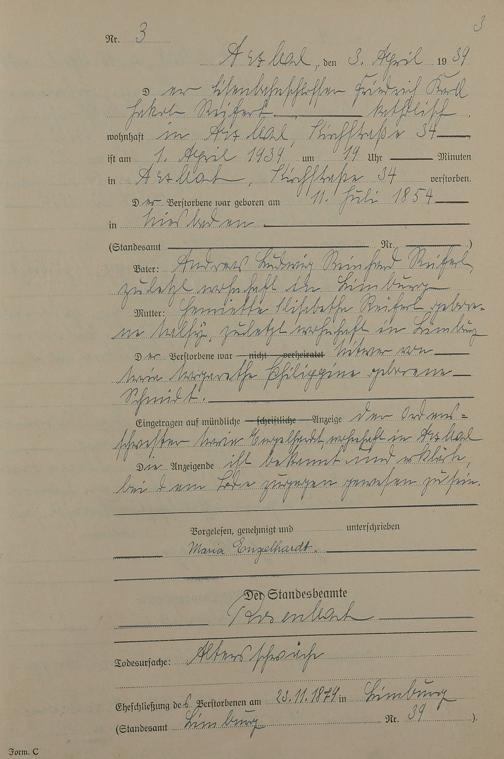 3
Nr. 3
Arzbach, den 3. April 1939
Der Eisenbahnschlosser Friedrich Karl
Jakob Reifert katholisch
wohnhaft in Arzbach, Kirchstraße 34
ist am 1. April 1939 um 19 Uhr Minuten
in Arzbach, Kirchstraße 34 verstorben.
Der Verstorbene war geboren am 11. Juli 1854
in Wiesbaden
(Standesamt Nr. )
Vater: Andreas Ludwig Reinhard Reifert,
zuletzt wohnhaft in Limburg
Mutter: Henriette Elisabethe Reifert gebore-
ne zuletzt wohnhaft in Limburg
Der Verstorbene war nicht verheiratet Witwer von
Maria Margarethe Philippine geborene
Schmidt.
Eingetragen auf mündliche schriftliche Anzeige der Ordens=
schwester Maria Engelhardt wohnhaft in Arzbach
Die Anzeigende ist bekannt und erklärte,
bei dem Tode zugegen gewesen zu sein.
Vorgelesen, genehmigt und unterschrieben
Maria Engelhardt.
Der Standesbeamte
Todesursache: Altersschwäche
Eheschließung des Verstorbenen am 23.11.1879 in Limburg
(Standesamt Limburg Nr. 39 ).
Form. C